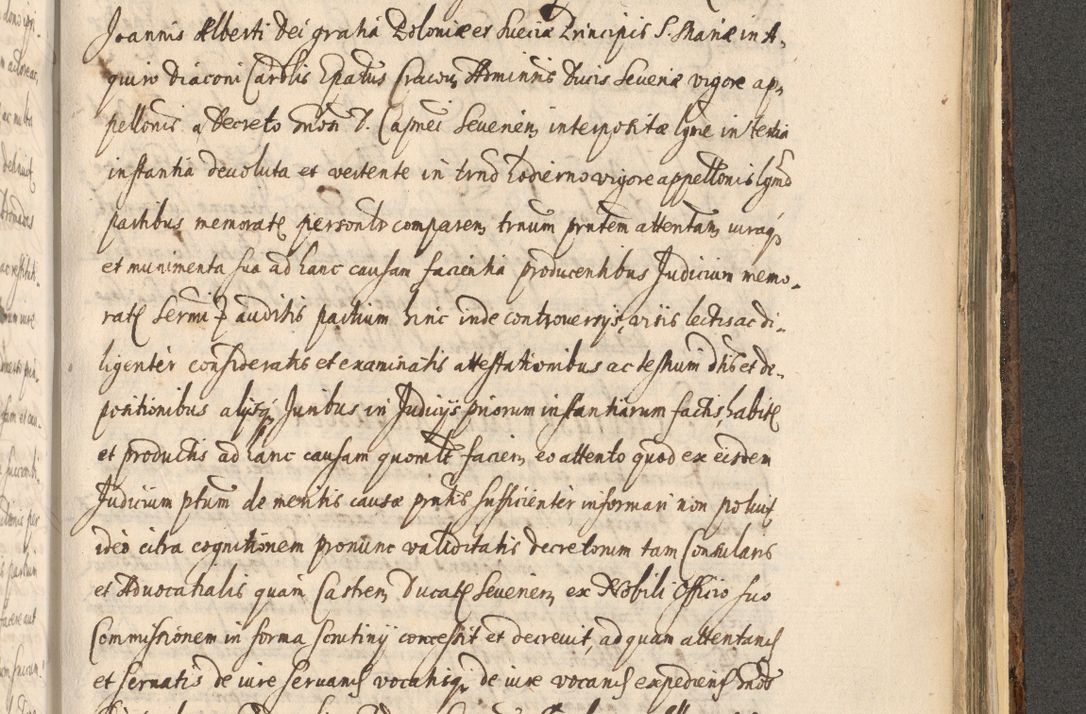 Joannis Alberti Dei gratia Poloniæ et Sueciæ Principis S. Mariæ in A-
quiro Diaconi Cardlis Epatus Cracou, Adminris Ducis Seueriæ vigore ap-
pellonis a Decreto D. Capnei Seuerien, interpositæ in tertia
instantia deuoluta et vertente in trno hodierno vigore appellonis
partibus memorat personlr comparen, trnum prntem attentan,
et munimenta sua ad hanc causam facientia producentibus Judicium memo-
rat Sermi P auditis partium hinc inde controuersys, visis lectis ac di-
ligenter consideratis et examinatis attestationibus ac testium dtis et de-
positionibus alysq Juribus in Judicijs priorum instantiarum factis, habit
et productis ad hanc causam quomlt facien, eo attento quod ex eisdem
Judicium ptum de meritis causæ prntis sufficienter informari non potuit
ideo citra cognitionem pronunc validitatis decretorum tam Consularis
et Aduocatialis quam Castren, Ducat Seuerien, ex Nobili Officio suo
Commissionem in forma Scrutinij concessit et decreuit, ad quam attentand
et seruatis de iure seruand vocatisq de iure vocand expediend